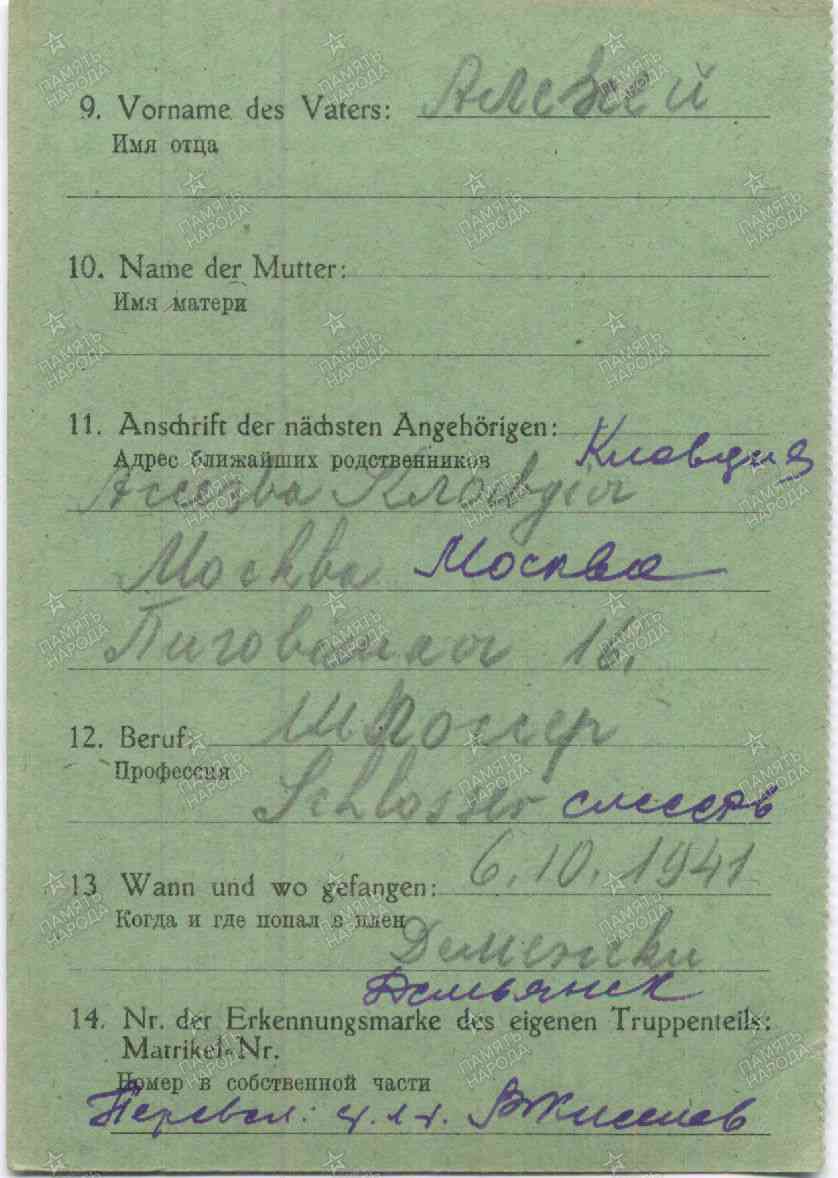 9. Vorname des Vaters: Алексей
Имя отца
10. Name der Mutter:
Имя матери
11. Anschrift der nächsten Angehörigen:
Адрес ближайших родственников Клавдия
Клавдія
Москва Москва
16.
12. Beruf: Шлоссер
Профессия
Schlosser слесарь
13 Wann und wo gefangen: 6.10.1941
Когда и где попал в плен
Демянск
14. Nr. der Erkennungsmarke des eigenen Truppenteils:
Matrikel-Nr.
Номер в собственной части
Перевел:
ПАМЯТЬ НАРОДА